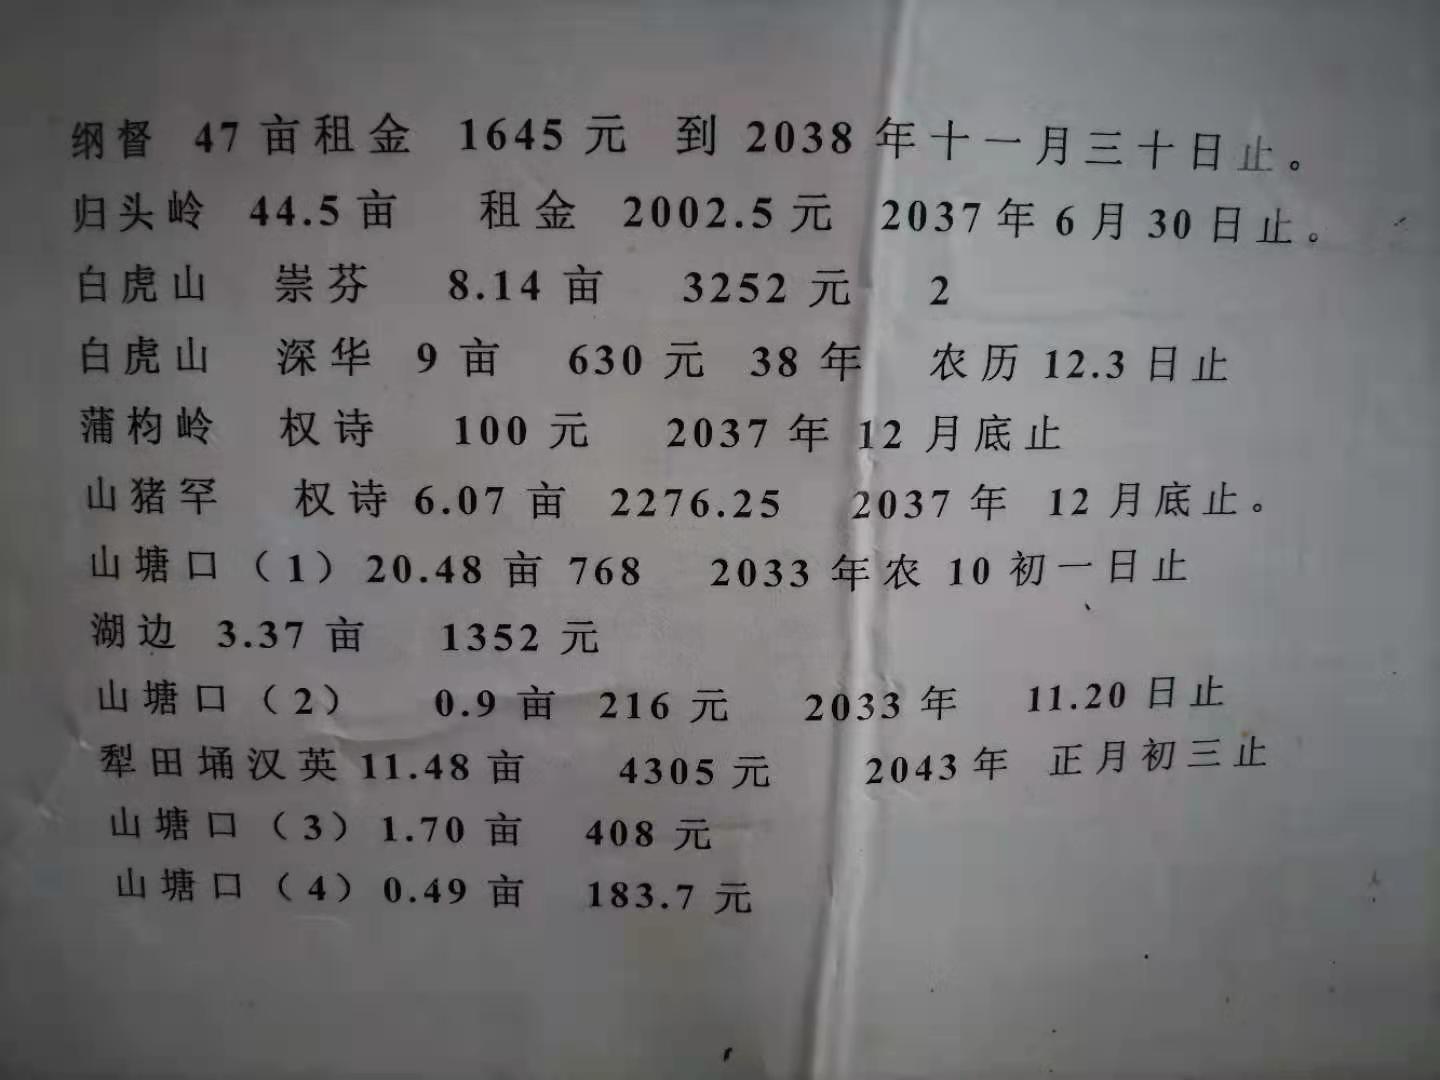 纲督 47 亩租金 1645 元 到 2038 年十一月三十日止。
归头岭 44.5 亩 租金 2002.5 元 2037 年 6 月 30 日止。
白虎山 崇芬 8.14 亩 3252 元 2
白虎山 深华 9 亩 630 元 38 年 农历 12.3 日止
蒲枃岭 权诗 100 元 2037 年 12 月底止
山猪罕 权诗 6.07 亩 2276.25 2037 年 12 月底止。
山塘口（1）20.48 亩 768 2033 年农 10 初一日止
湖边 3.37 亩 1352 元
山塘口（2） 0.9 亩 216 元 2033 年 11.20 日止
犁田埇汉英 11.48 亩 4305 元 2043 年 正月初三止
山塘口（3）1.70 亩 408 元
山塘口（4）0.49 亩 183.7 元